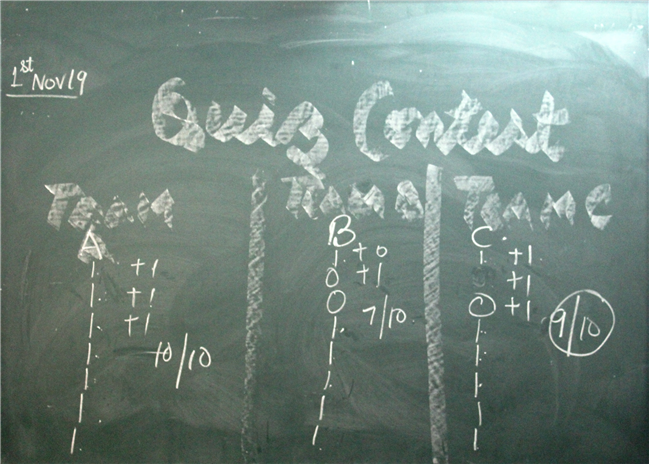 1st Nov 19
Quiz Contest
Team
A
+1
+1
+1
10/10
Team B
B
1
0
0
1
1
1
1
1
+0
+1
7/10
Team C
C
1
0
1
1
1
1
1
+1
+1
+1
9/10